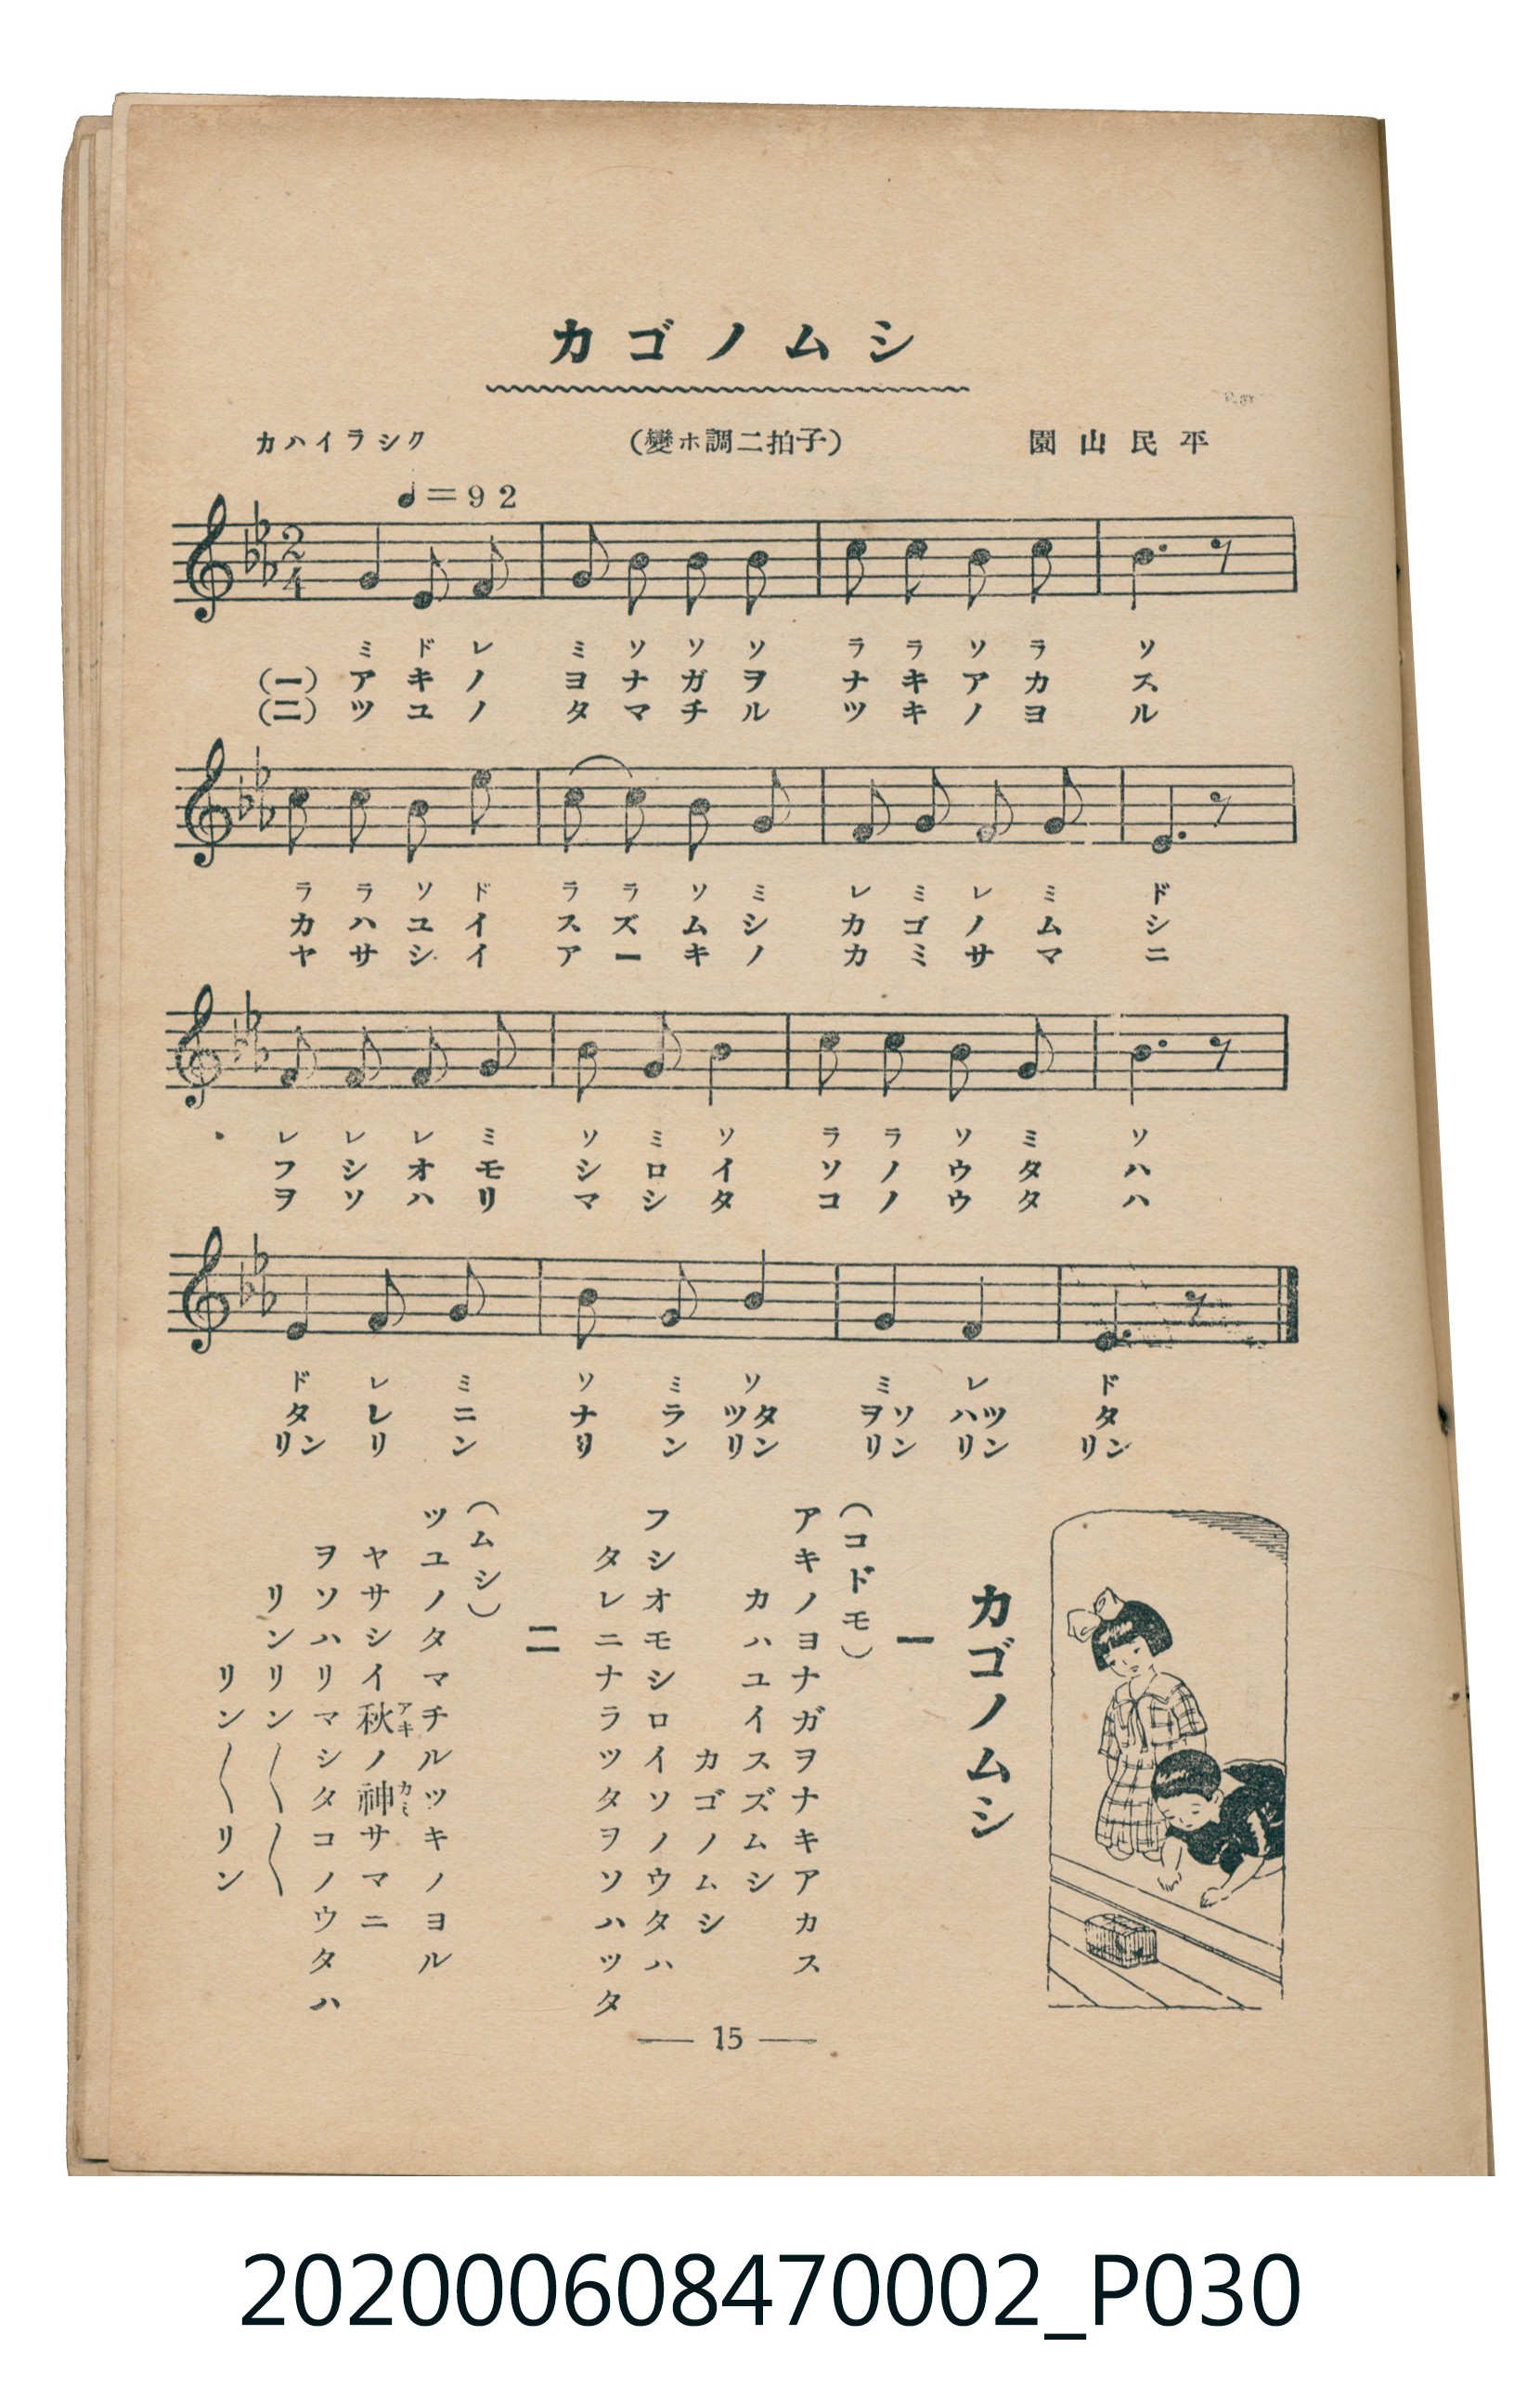 カゴノムシ
カハイラシク (變ホ調二拍子) 園山民平
♩=92
ミ ド レ ミ ソ ソ ソ ラ ラ ソ ラ ソ
(一) ア キ ノ ヨ ナ ガ ヲ ナ キ ア カ ス
(二) ツ ユ ノ タ マ チ ル ツ キ ノ ヨ ル
ラ ラ ソ ド ラ ラ ソ ミ レ ミ レ ミ ド
カ ハ ユ イ ス ズ ム シ カ ゴ ノ ム シ
ヤ サ シ イ ア ー キ ノ カ ミ サ マ ニ
レ レ レ ミ ソ ミ ソ ラ ラ ソ ミ ソ
フ シ オ モ シ ロ イ ソ ノ ウ タ ハ
ヲ ソ ハ リ マ シ タ コ ノ ウ タ ハ
ド レ ミ ソ ミ ソ ミ レ ド
タ レ ニ ナ ラ ツタ ヲソ ハツ タ
リン リ ン リ ン リン リン リン リン
カゴノムシ
一
(コドモ)
アキノヨナガヲナキアカス
カハユイスズムシ
カゴノムシ
フシオモシロイソノウタハ
タレニナラツタヲソハツタ
二
(ムシ)
ツユノタマチルツキノヨル
ヤサシイ秋アキノ神カミサマニ
ヲソハリマシタコノウタハ
リンリン〱〱
リン〱リン
— 15 —
202000608470002_P030